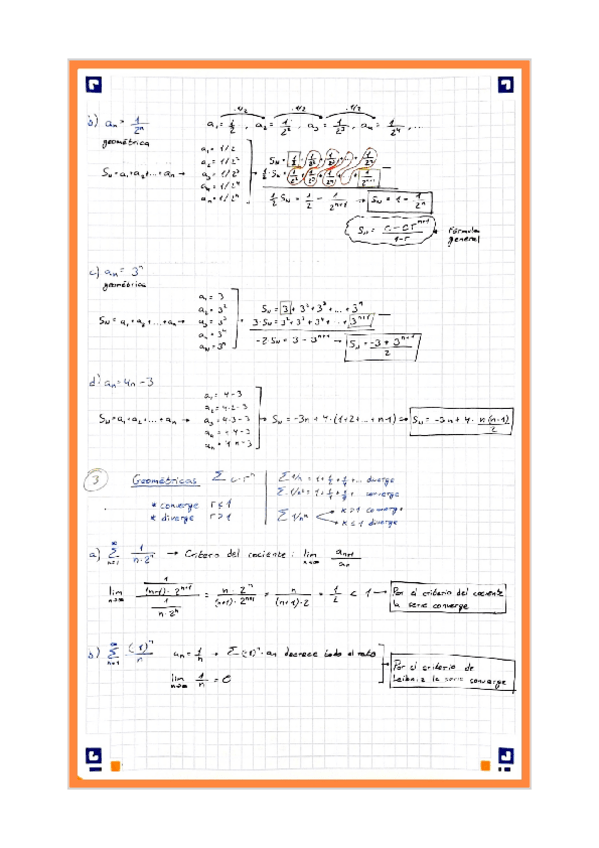 b) an = 1/2^n
a1 = 1/2 , a2 = 1/2^2 , a3 = 1/2^3 , a4 = 1/2^4 , ...
·1/2 ·1/2 ·1/2
geométrica
SN = a1 + a2 + ... + an →
a1 = 1/2
a2 = 1/2^2
a3 = 1/2^3
a4 = 1/2^4
an = 1/2^n
SN = 1/2 + 1/2^2 + 1/2^3 + ... + 1/2^n
1/2 · SN = 1/2^2 + 1/2^3 + 1/2^4 + ... + 1/2^n+1
1/2 SN = 1/2 - 1/2^n+1 → SN = 1 - 1/2^n
Fórmula
general
c) an = 3^n
geométrica
SN = a1 + a2 + ... + an →
a1 = 3
a2 = 3^2
a3 = 3^3
an = 3^n
SN = 3 + 3^2 + 3^3 + ... + 3^n
3·SN = 3^2 + 3^3 + 3^4 + ... + 3^n+1
-2 SN = 3 - 3^n+1 → SN = -3 + 3^n+1 / 2
d) an = 4n - 3
SN = a1 + a2 + ... + an →
a1 = 4 - 3
a2 = 4·2 - 3
a3 = 4·3 - 3
an = 4·n - 3
SN = -3n + 4 · (1+2+...+n-1)
SN = -3n + 4 · n(n-1)/2
3 Geométricas Σ
* converge
* diverge r > 1
Σ 1/n diverge
Σ 1/n^2 converge
α > 1 converge
α ≤ 1 diverge
a) Σ n=1 ∞ 1/n·2^n → Criterio del cociente: lim n→∞ an+1/an
lim n→∞ 1/(n+1)·2^n+1 / 1/n·2^n = n·2^n/(n+1)·2^n+1 = n/(n+1)·2 = 1/2 < 1 → Por el criterio del cociente
la serie converge
b) Σ n=1 ∞ (-1)^n/n an = 1/n → Σ(-1)^n · an decrece todo el rato
lim n→∞ 1/n = 0
Por el criterio de
Leibniz la serie converge